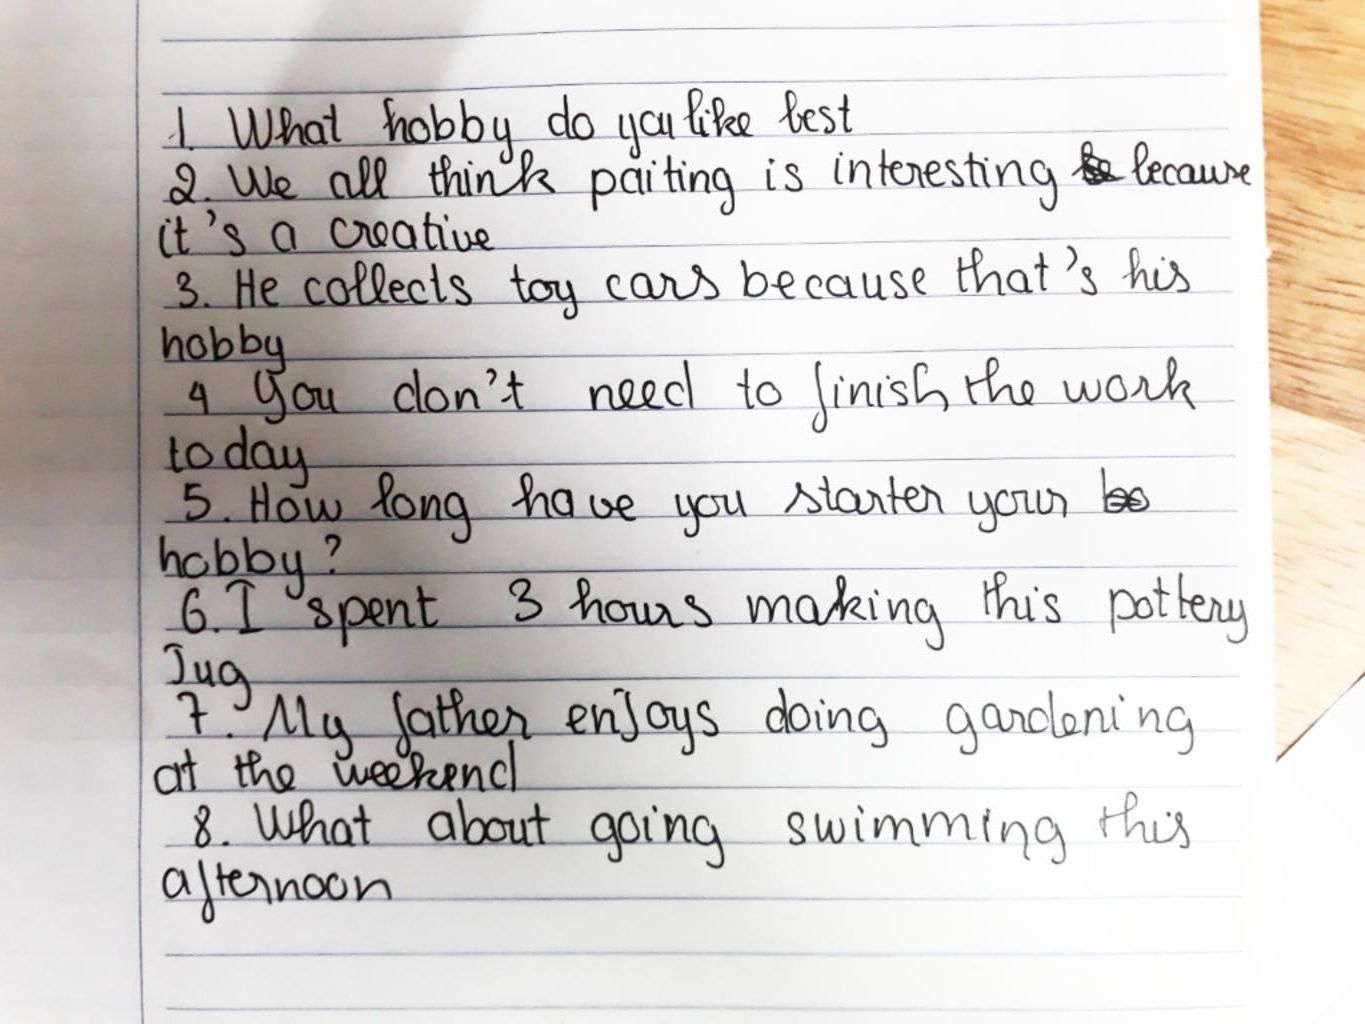 1. What hobby do you like best
2. We all think paiting is interesting because
it's a creative
3. He collects toy cars because that's his
hobby
4 You don't need to finish the work
today
5. How long have you starter your
hobby?
6. I spent 3 hours making this pottery
Jug
7. My father enjoys doing gardening
at the weekend
8. What about going swimming this
afternoon